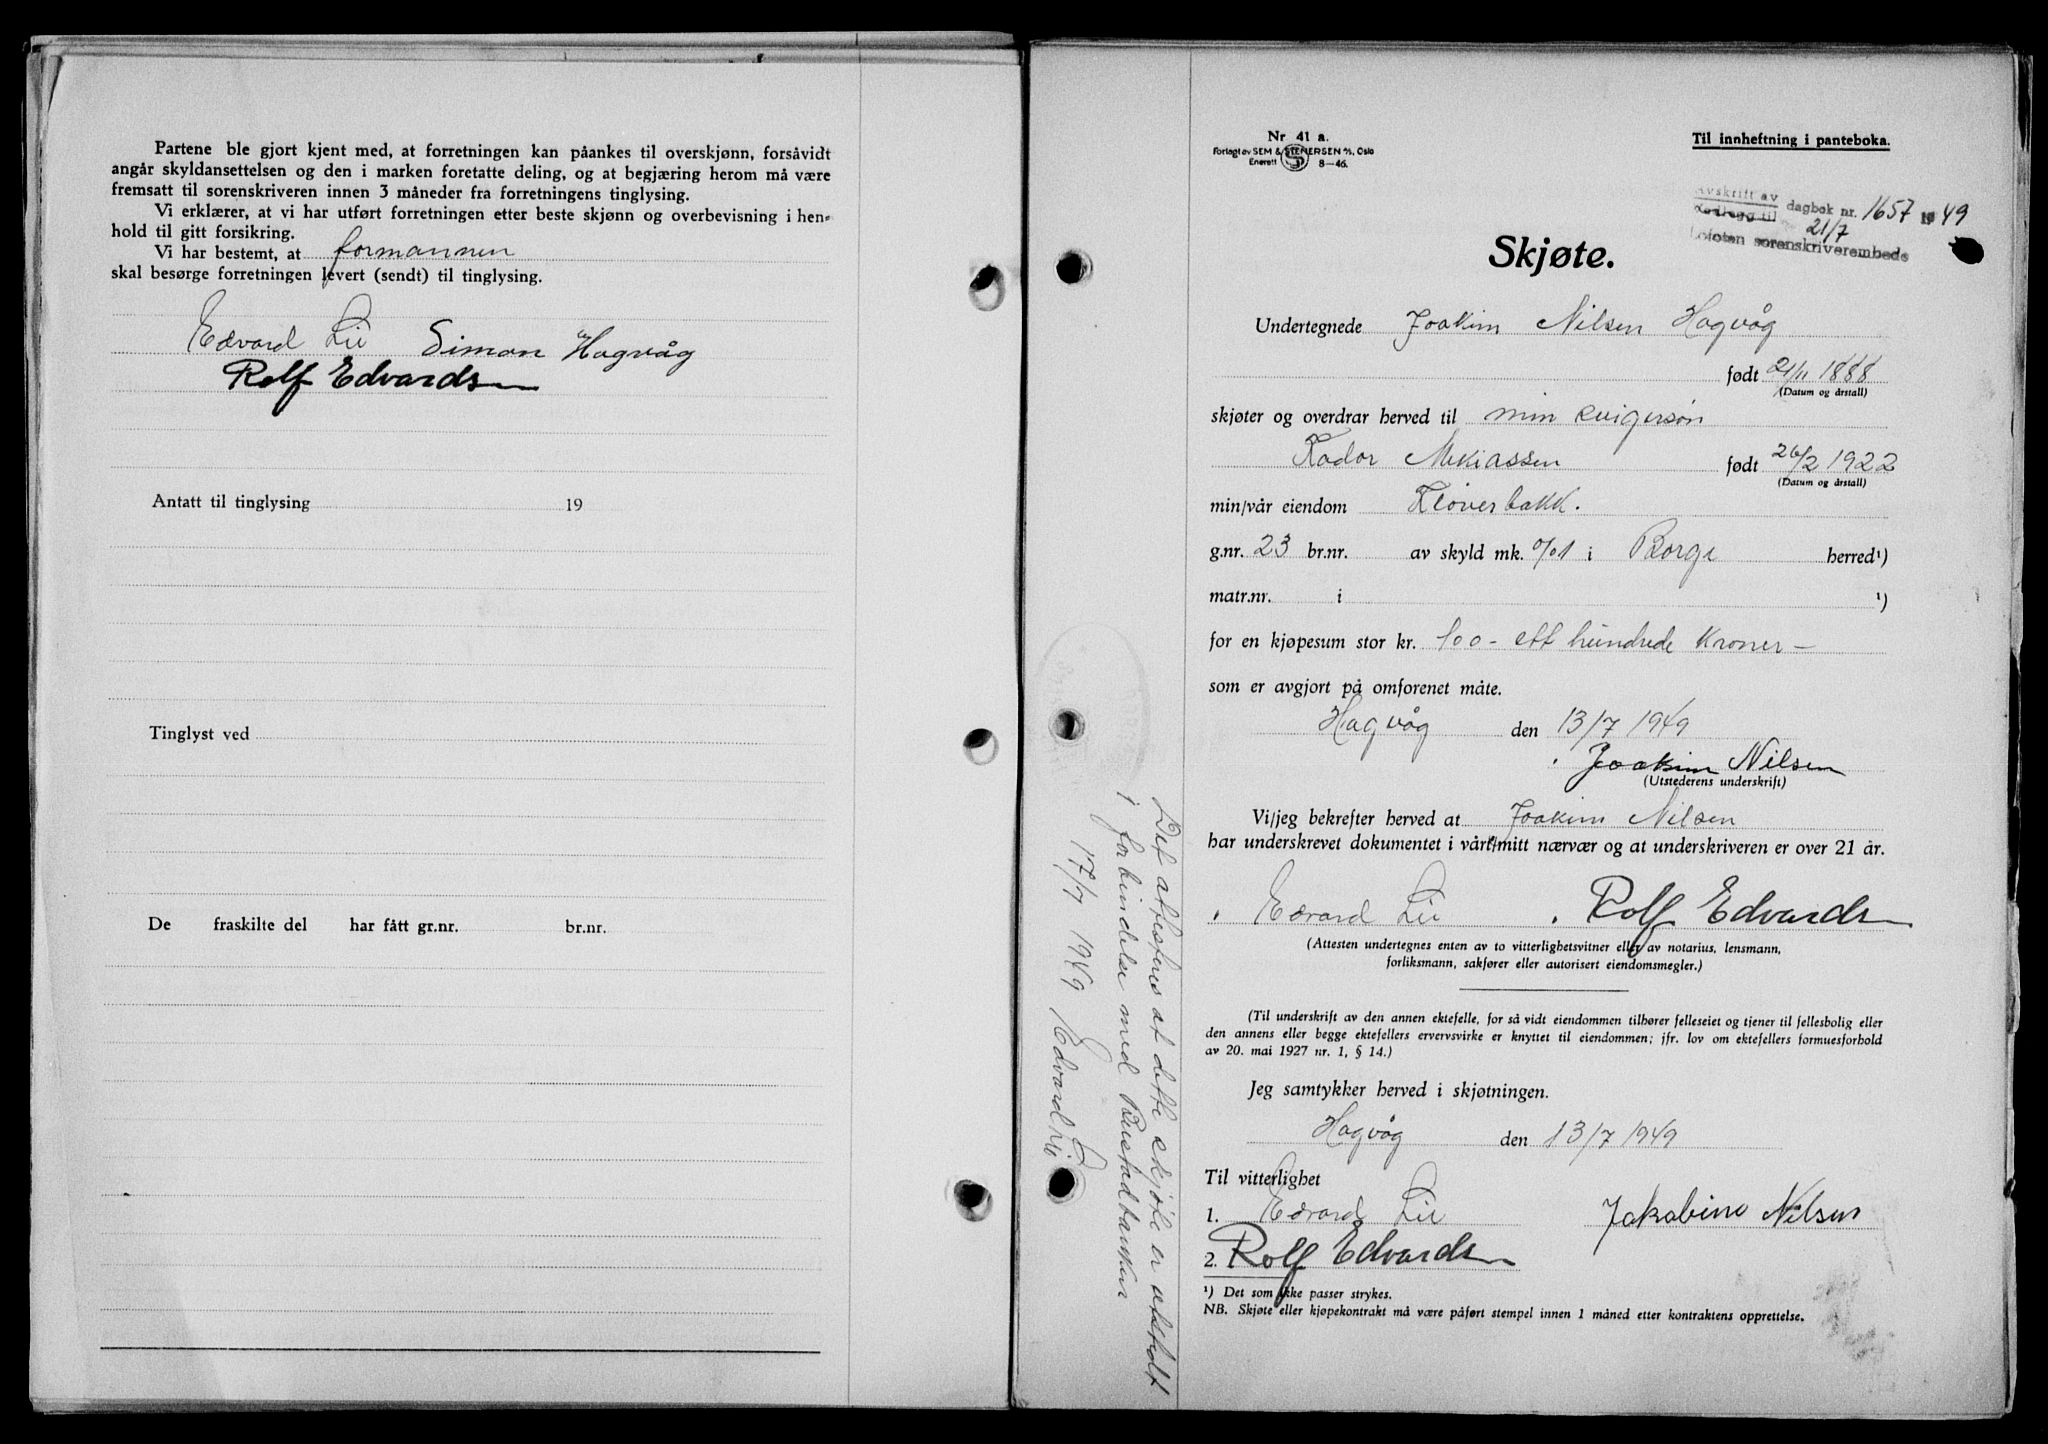 Partene ble gjort kjent med, at forretningen kan påankes til overskjønn, forsåvidt
angår skyldansettelsen og den i marken foretatte deling, og at begjæring herom må være
fremsatt til sorenskriveren innen 3 måneder fra forretningens tinglysing.
Vi erklærer, at vi har utført forretningen etter beste skjønn og overbevisning i hen-
hold til gitt forsikring.
Vi har bestemt, at formannen
skal besørge forretningen levert (sendt) til tinglysing.
Edvard Lie Simon Hagvåg
Rolf Edvardsen
Antatt til tinglysing 19
Tinglyst ved
De fraskilte del har fått gr.nr. br.nr.
Nr 41 a.
Forlagt av SEM & STENERSEN A/S, Oslo
Enerett 8-46.
Til innheftning i panteboka.
Avskrift av dagbok nr. 1657 1949
21/7
Lofoten sorenskriverembede
Skjøte.
Undertegnede Joakim Nilsen Hagvåg
født 21/11 1888
(Datum og årstall)
skjøter og overdrar herved til min svigersøn
Kador Mekiassen født 26/2 1922
(Datum og årstall)
min/vår eiendom Kløverbakk.
g.nr. 23 br.nr. av skyld mk. 0/01 i Borge herred¹)
matr.nr. i ¹)
for en kjøpesum stor kr. 100 - ett hundrede kroner -
som er avgjort på omforenet måte.
Hagvåg den 13/7 1949
Joakim Nilsen
(Utstederens underskrift)
Vi/jeg bekrefter herved at Joakim Nilsen
har underskrevet dokumentet i vårt/mitt nærvær og at underskriveren er over 21 år.
Edvard Lie Rolf Edvardsen
(Attesten undertegnes enten av to vitterlighetsvitner eller av notarius, lensmann,
forliksmann, sakfører eller autorisert eiendomsmegler.)
(Til underskrift av den annen ektefelle, for så vidt eiendommen tilhører felleseiet og tjener til fellesbolig eller
den annens eller begge ektefellers ervervsvirke er knyttet til eiendommen; jfr. lov om ektefellers formuesforhold
av 20. mai 1927 nr. 1, § 14.)
Jeg samtykker herved i skjøtningen.
Hagvåg den 13/7 1949
Til vitterlighet
1. Edvard Lie Jakobine Nilsen
2. Rolf Edvardsen
¹) Det som ikke passer strykes.
NB. Skjøte eller kjøpekontrakt må være påført stempel innen 1 måned etter kontraktens opprettelse.
Det attesteres at dette skjøte er utstedt
i forbindelse med Bustadbanken
17/7 1949 Edvard Lie